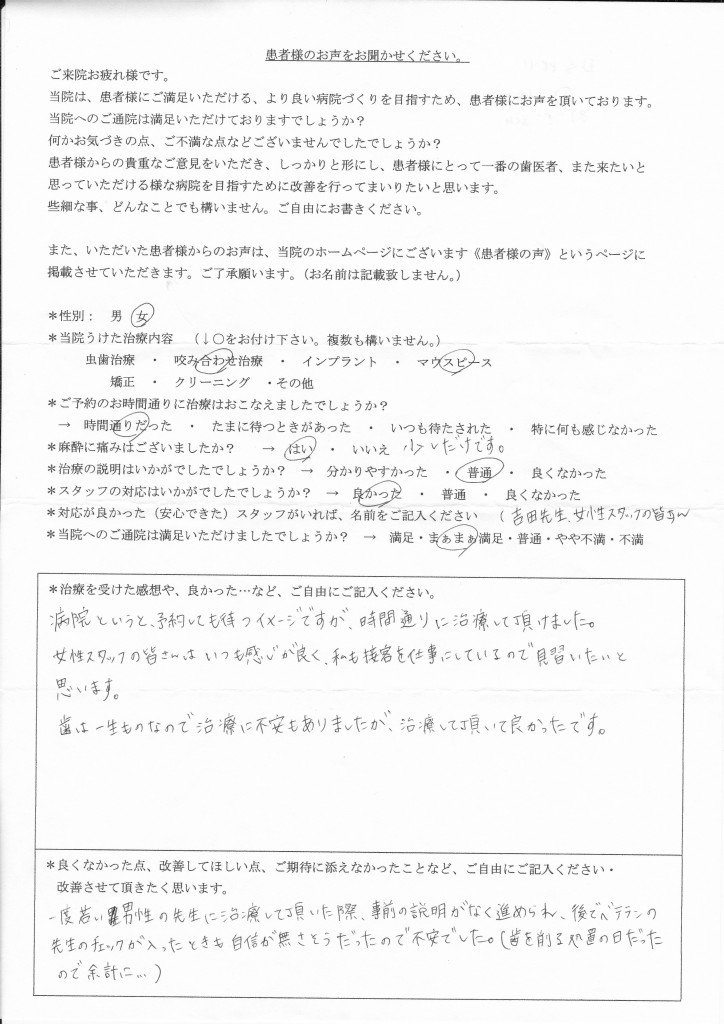 患者様のお声をお聞かせください。
ご来院お疲れ様です。
当院は、患者様にご満足いただける、より良い病院づくりを目指すため、患者様にお声を頂いております。
当院へのご通院は満足いただけておりますでしょうか？
何かお気づきの点、ご不満な点などございませんでしたでしょうか？
患者様からの貴重なご意見をいただき、しっかりと形にし、患者様にとって一番の歯医者、また来たいと
思っていただける様な病院を目指すために改善を行ってまいりたいと思います。
些細な事、どんなことでも構いません。ご自由にお書きください。
また、いただいた患者様からのお声は、当院のホームページにございます《患者様の声》というページに
掲載させていただきます。ご了承願います。（お名前は記載致しません。）
＊性別：　男　女
＊当院うけた治療内容　（↓○をお付け下さい。複数も構いません。）
虫歯治療　・　咬み合わせ治療　・　インプラント　・　マウスピース
矯正　・　クリーニング　・その他
＊ご予約のお時間通りに治療はおこなえましたでしょうか？
→　時間通りだった　・　たまに待つときがあった　・　いつも待たされた　・　特に何も感じなかった
＊麻酔に痛みはございましたか？　→　はい　・　いいえ　少しだけです。
＊治療の説明はいかがでしたでしょうか？　→　分かりやすかった　・　普通　・　良くなかった
＊スタッフの対応はいかがでしたでしょうか？　→　良かった　・　普通　・　良くなかった
＊対応が良かった（安心できた）スタッフがいれば、名前をご記入ください　（吉田先生、女性スタッフの皆さん
＊当院へのご通院は満足いただけましたでしょうか？　→　満足・まぁまぁ満足・普通・やや不満・不満
＊治療を受けた感想や、良かった…など、ご自由にご記入ください。
病院というと、予約しても待つイメージですが、時間通りに治療して頂けました。
女性スタッフの皆さんは いつも感じが良く、私も接客を仕事にしているので見習いたいと
思います。
歯は一生ものなので治療に不安もありましたが、治療して頂いて良かったです。
＊良くなかった点、改善してほしい点、ご期待に添えなかったことなど、ご自由にご記入ください・
改善させて頂きたく思います。
一度若い男性の先生に治療して頂いた際、事前の説明がなく進められ、後でベテランの
先生のチェックが入ったときも自信が無さそうだったので不安でした。（歯を削る処置の日だった
ので余計に…）